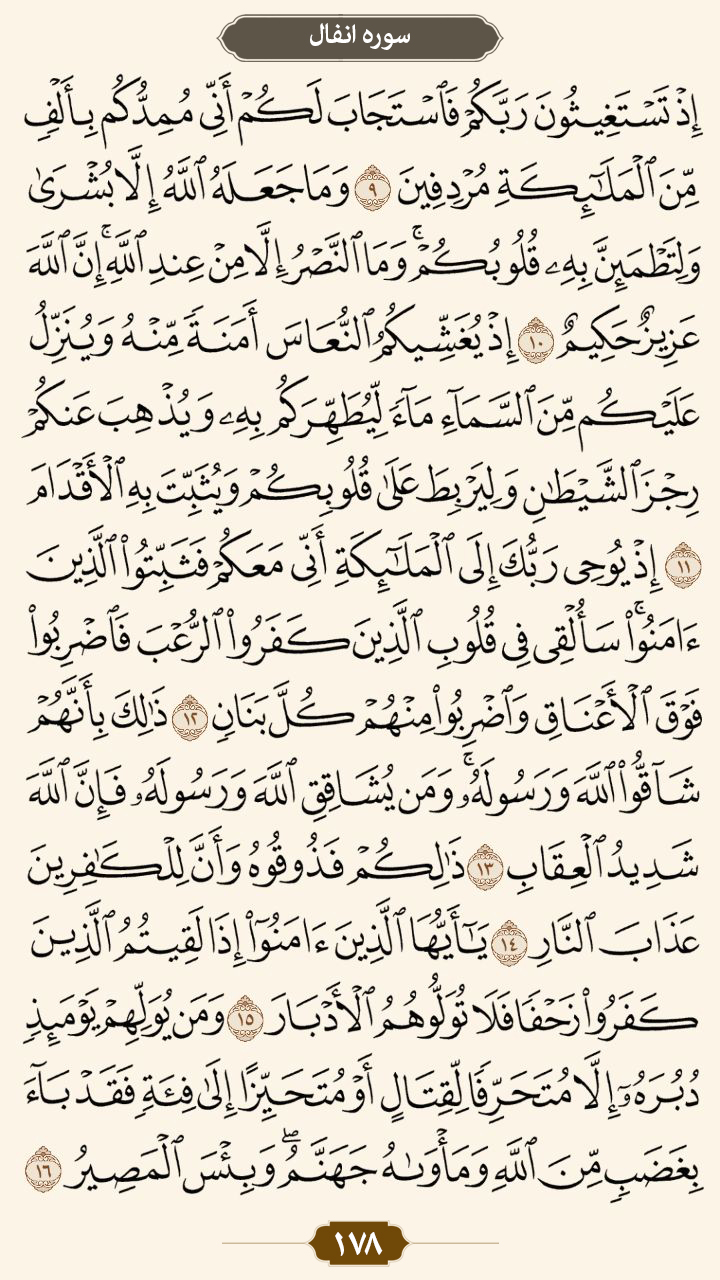 سوره انفال
إِذْ تَسْتَغِيثُونَ رَبَّكُمْ فَٱسْتَجَابَ لَكُمْ أَنِّى مُمِدُّكُم بِأَلْفٍ
مِّنَ ٱلْمَلَـٰٓئِكَةِ مُرْدِفِينَ ٩ وَمَا جَعَلَهُ ٱللَّهُ إِلَّا بُشْرَىٰ
وَلِتَطْمَئِنَّ بِهِۦ قُلُوبُكُمْ ۚ وَمَا ٱلنَّصْرُ إِلَّا مِنْ عِندِ ٱللَّهِ ۚ إِنَّ ٱللَّهَ
عَزِيزٌ حَكِيمٌ ١٠ إِذْ يُغَشِّيكُمُ ٱلنُّعَاسَ أَمَنَةً مِّنْهُ وَيُنَزِّلُ
عَلَيْكُم مِّنَ ٱلسَّمَآءِ مَآءً لِّيُطَهِّرَكُم بِهِۦ وَيُذْهِبَ عَنكُمْ
رِجْزَ ٱلشَّيْطَـٰنِ وَلِيَرْبِطَ عَلَىٰ قُلُوبِكُمْ وَيُثَبِّتَ بِهِ ٱلْأَقْدَامَ
١١ إِذْ يُوحِى رَبُّكَ إِلَى ٱلْمَلَـٰٓئِكَةِ أَنِّى مَعَكُمْ فَثَبِّتُوا۟ ٱلَّذِينَ
ءَامَنُوا۟ ۚ سَأُلْقِى فِى قُلُوبِ ٱلَّذِينَ كَفَرُوا۟ ٱلرُّعْبَ فَٱضْرِبُوا۟
فَوْقَ ٱلْأَعْنَاقِ وَٱضْرِبُوا۟ مِنْهُمْ كُلَّ بَنَانٍ ١٢ ذَٰلِكَ بِأَنَّهُمْ
شَآقُّوا۟ ٱللَّهَ وَرَسُولَهُۥ ۚ وَمَن يُشَاقِقِ ٱللَّهَ وَرَسُولَهُۥ فَإِنَّ ٱللَّهَ
شَدِيدُ ٱلْعِقَابِ ١٣ ذَٰلِكُمْ فَذُوقُوهُ وَأَنَّ لِلْكَـٰفِرِينَ
عَذَابَ ٱلنَّارِ ١٤ يَـٰٓأَيُّهَا ٱلَّذِينَ ءَامَنُوٓا۟ إِذَا لَقِيتُمُ ٱلَّذِينَ
كَفَرُوا۟ زَحْفًا فَلَا تُوَلُّوهُمُ ٱلْأَدْبَارَ ١٥ وَمَن يُوَلِّهِمْ يَوْمَئِذٍ
دُبُرَهُۥٓ إِلَّا مُتَحَرِّفًا لِّقِتَالٍ أَوْ مُتَحَيِّزًا إِلَىٰ فِئَةٍ فَقَدْ بَآءَ
بِغَضَبٍ مِّنَ ٱللَّهِ وَمَأْوَىٰهُ جَهَنَّمُ ۖ وَبِئْسَ ٱلْمَصِيرُ ١٦
١٧٨